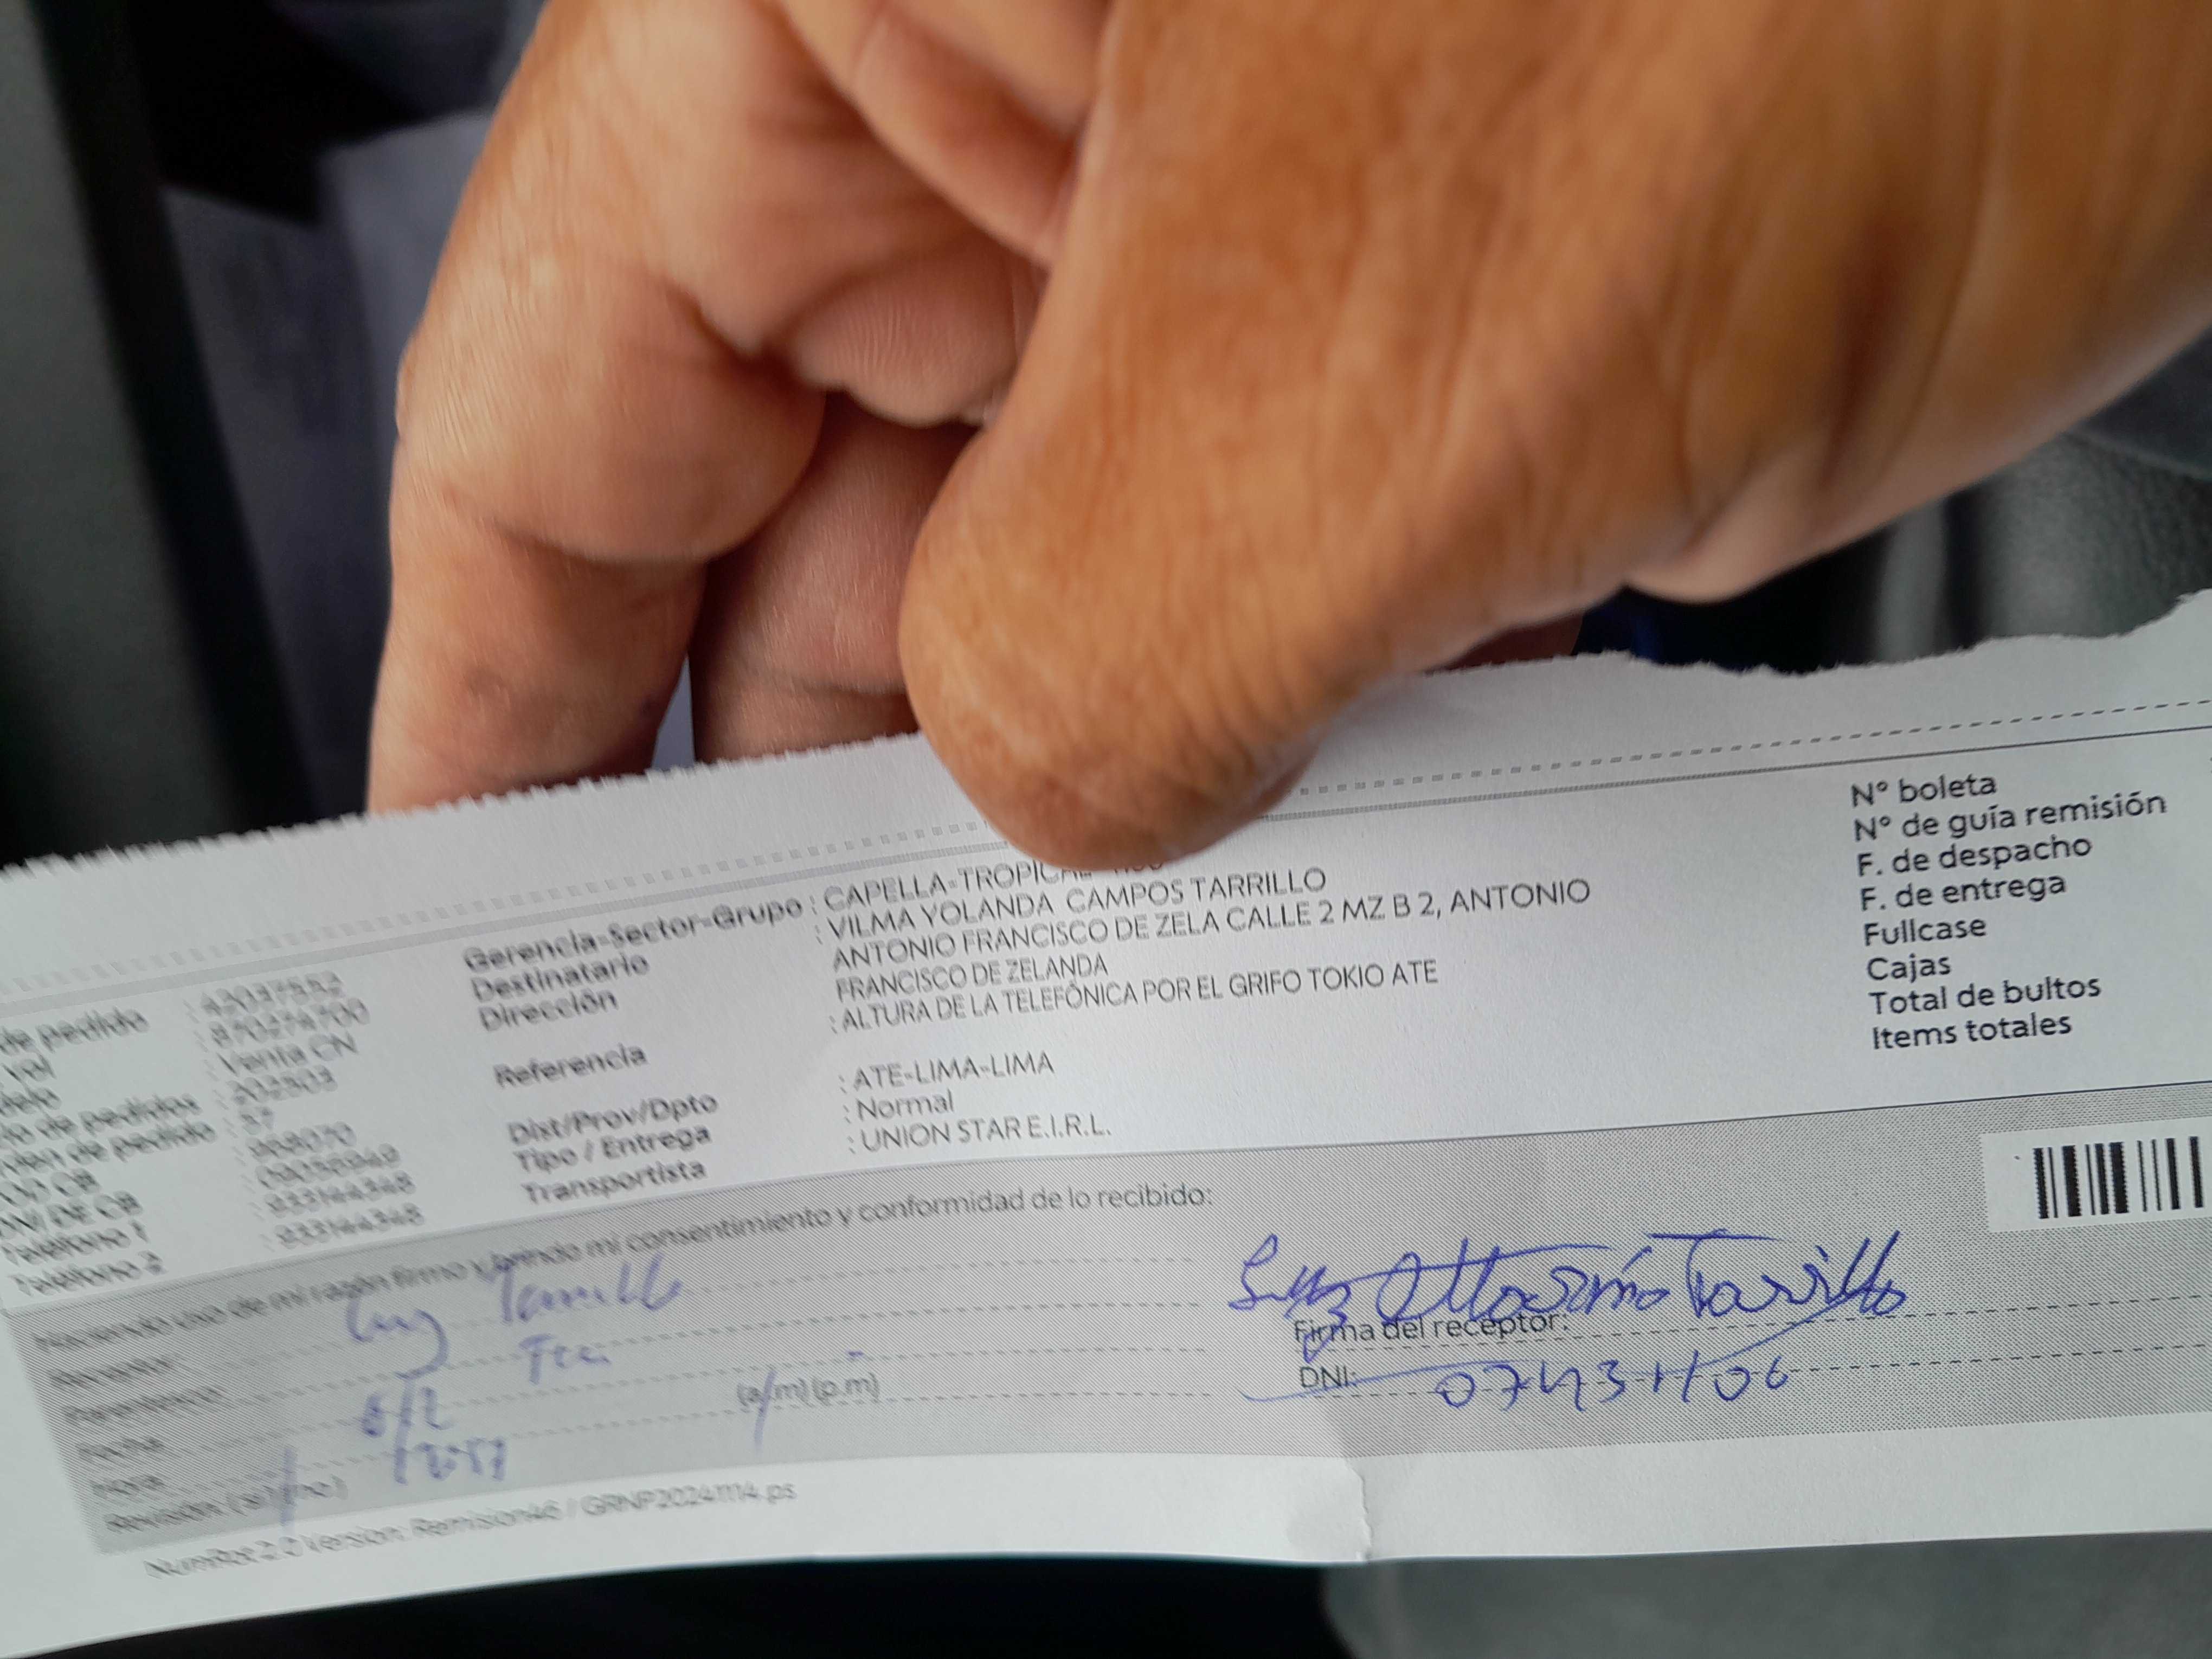 de pedido : 43037552
: 870274700
: Venta CN
de pedidos : 202503
de pedido : 37
DNI DE CB
Teléfono 1 : 933144348
Teléfono 2 : 933144348
Gerencia-Sector-Grupo : CAPELLA-TROPICAL
Destinatario : VILMA YOLANDA CAMPOS TARRILLO
Dirección : ANTONIO FRANCISCO DE ZELA CALLE 2 MZ B 2, ANTONIO
FRANCISCO DE ZELANDA
Referencia : ALTURA DE LA TELEFÓNICA POR EL GRIFO TOKIO ATE
Dist/Prov/Dpto : ATE-LIMA-LIMA
Tipo / Entrega : Normal
Transportista : UNION STAR E.I.R.L.
N° boleta
N° de guía remisión
F. de despacho
F. de entrega
Fullcase
Cajas
Total de bultos
Items totales
Haciendo uso de mi razón firmo y brindo mi consentimiento y conformidad de lo recibido:
Receptor: Luz Tarrillo
Parentesco:
Fecha:
Hora: (a.m) (p.m)
Revisión: (si) (no)
Luz Tarrillo
Firma del receptor:
DNI:
NumRot 2.0 Version: Remision46 / GRNP20241114.ps